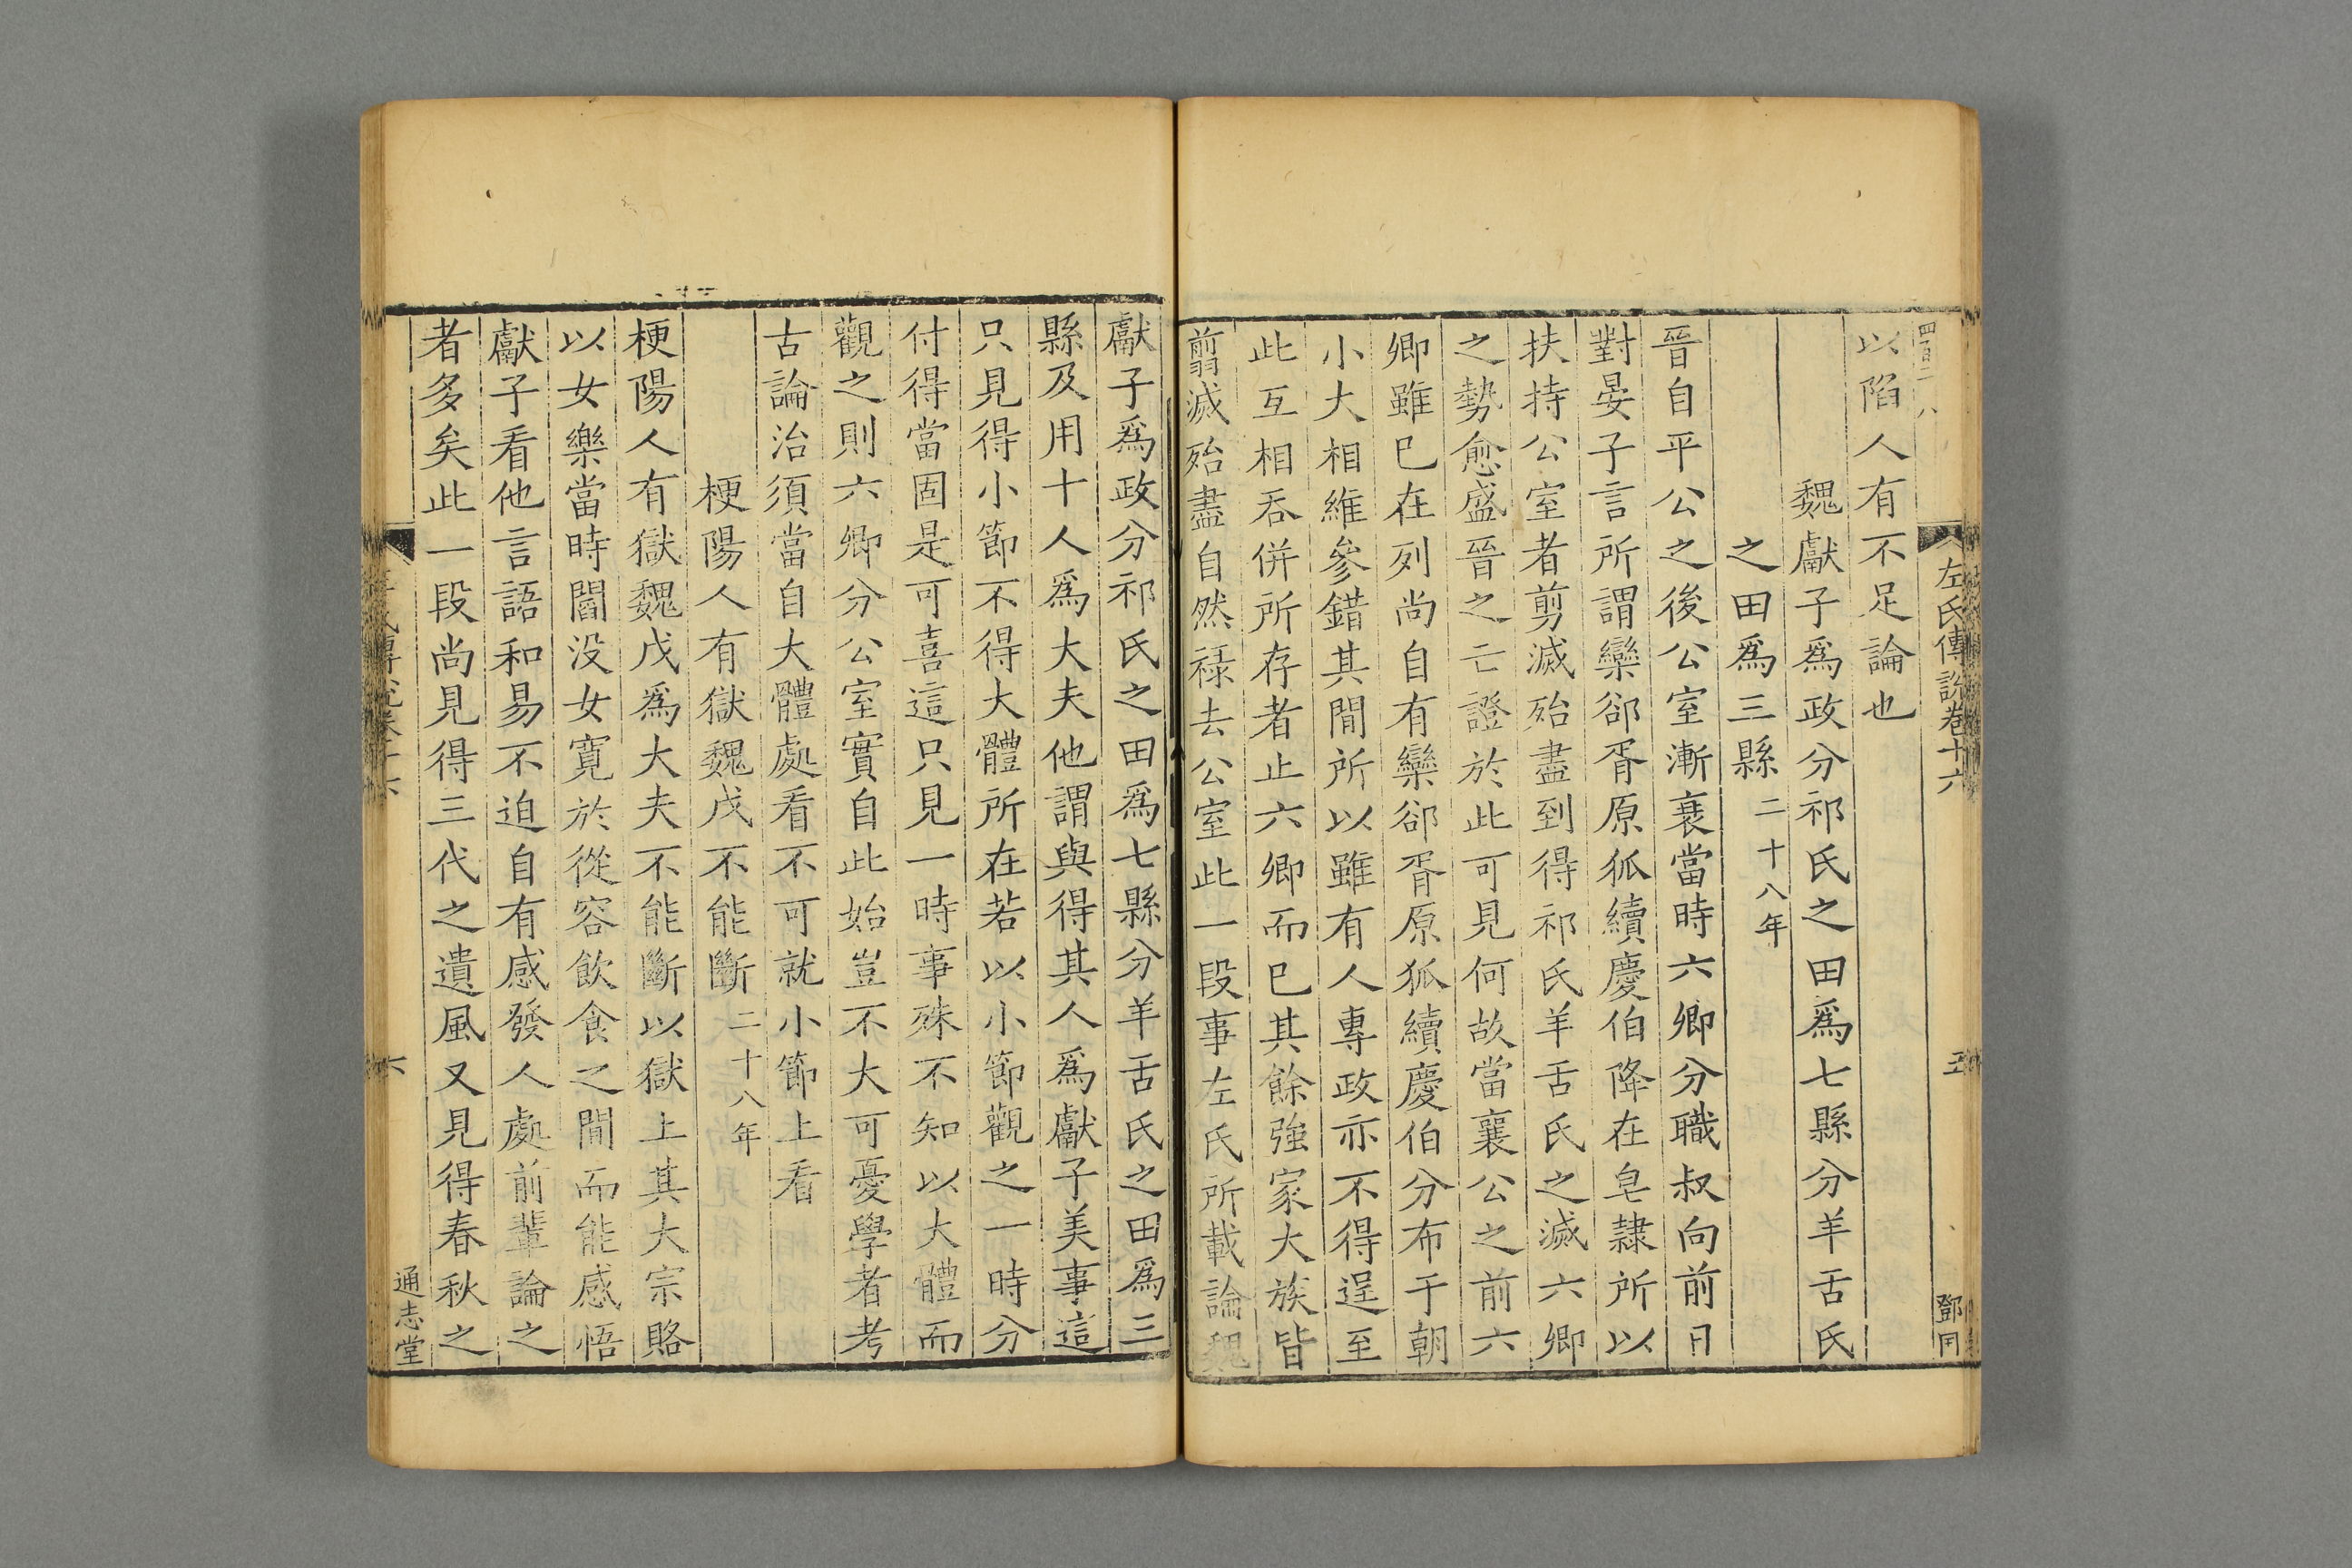 左氏傳說卷十六
五
鄧
以陷人有不足論也
魏獻子爲政分祁氏之田爲七縣分羊舌氏
之田爲三縣二十八年
晉自平公之後公室漸衰當時六卿分職叔向前日
對晏子言所謂欒郤胥原狐續慶伯降在皂隷所以
扶持公室者剪滅殆盡到得祁氏羊舌氏之滅六卿
之勢愈盛晉之亡證於此可見何故當襄公之前六
卿雖巳在列尚自有欒郤胥原狐續慶伯分布于朝
小大相維參錯其間所以雖有人專政亦不得逞至
此互相吞併所存者止六卿而巳其餘強家大族皆
翦滅殆盡自然禄去公室此一段事左氏所載論魏
獻子爲政分祁氏之田爲七縣分羊舌氏之田爲三
縣及用十人爲大夫他謂與得其人爲獻子美事這
只見得小節不得大體所在若以小節觀之一時分
付得當固是可喜這只見一時事殊不知以大體而
觀之則六卿分公室實自此始豈不大可憂學者考
古論治須當自大體處看不可就小節上看
梗陽人有獄魏戊不能斷二十八年
梗陽人有獄魏戊爲大夫不能斷以獄上其大宗賂
以女樂當時閻没女寬於從容飲食之間而能感悟
獻子看他言語和易不迫自有感發人處前輩論之
者多矣此一段尚見得三代之遺風又見得春秋之
六
通志堂